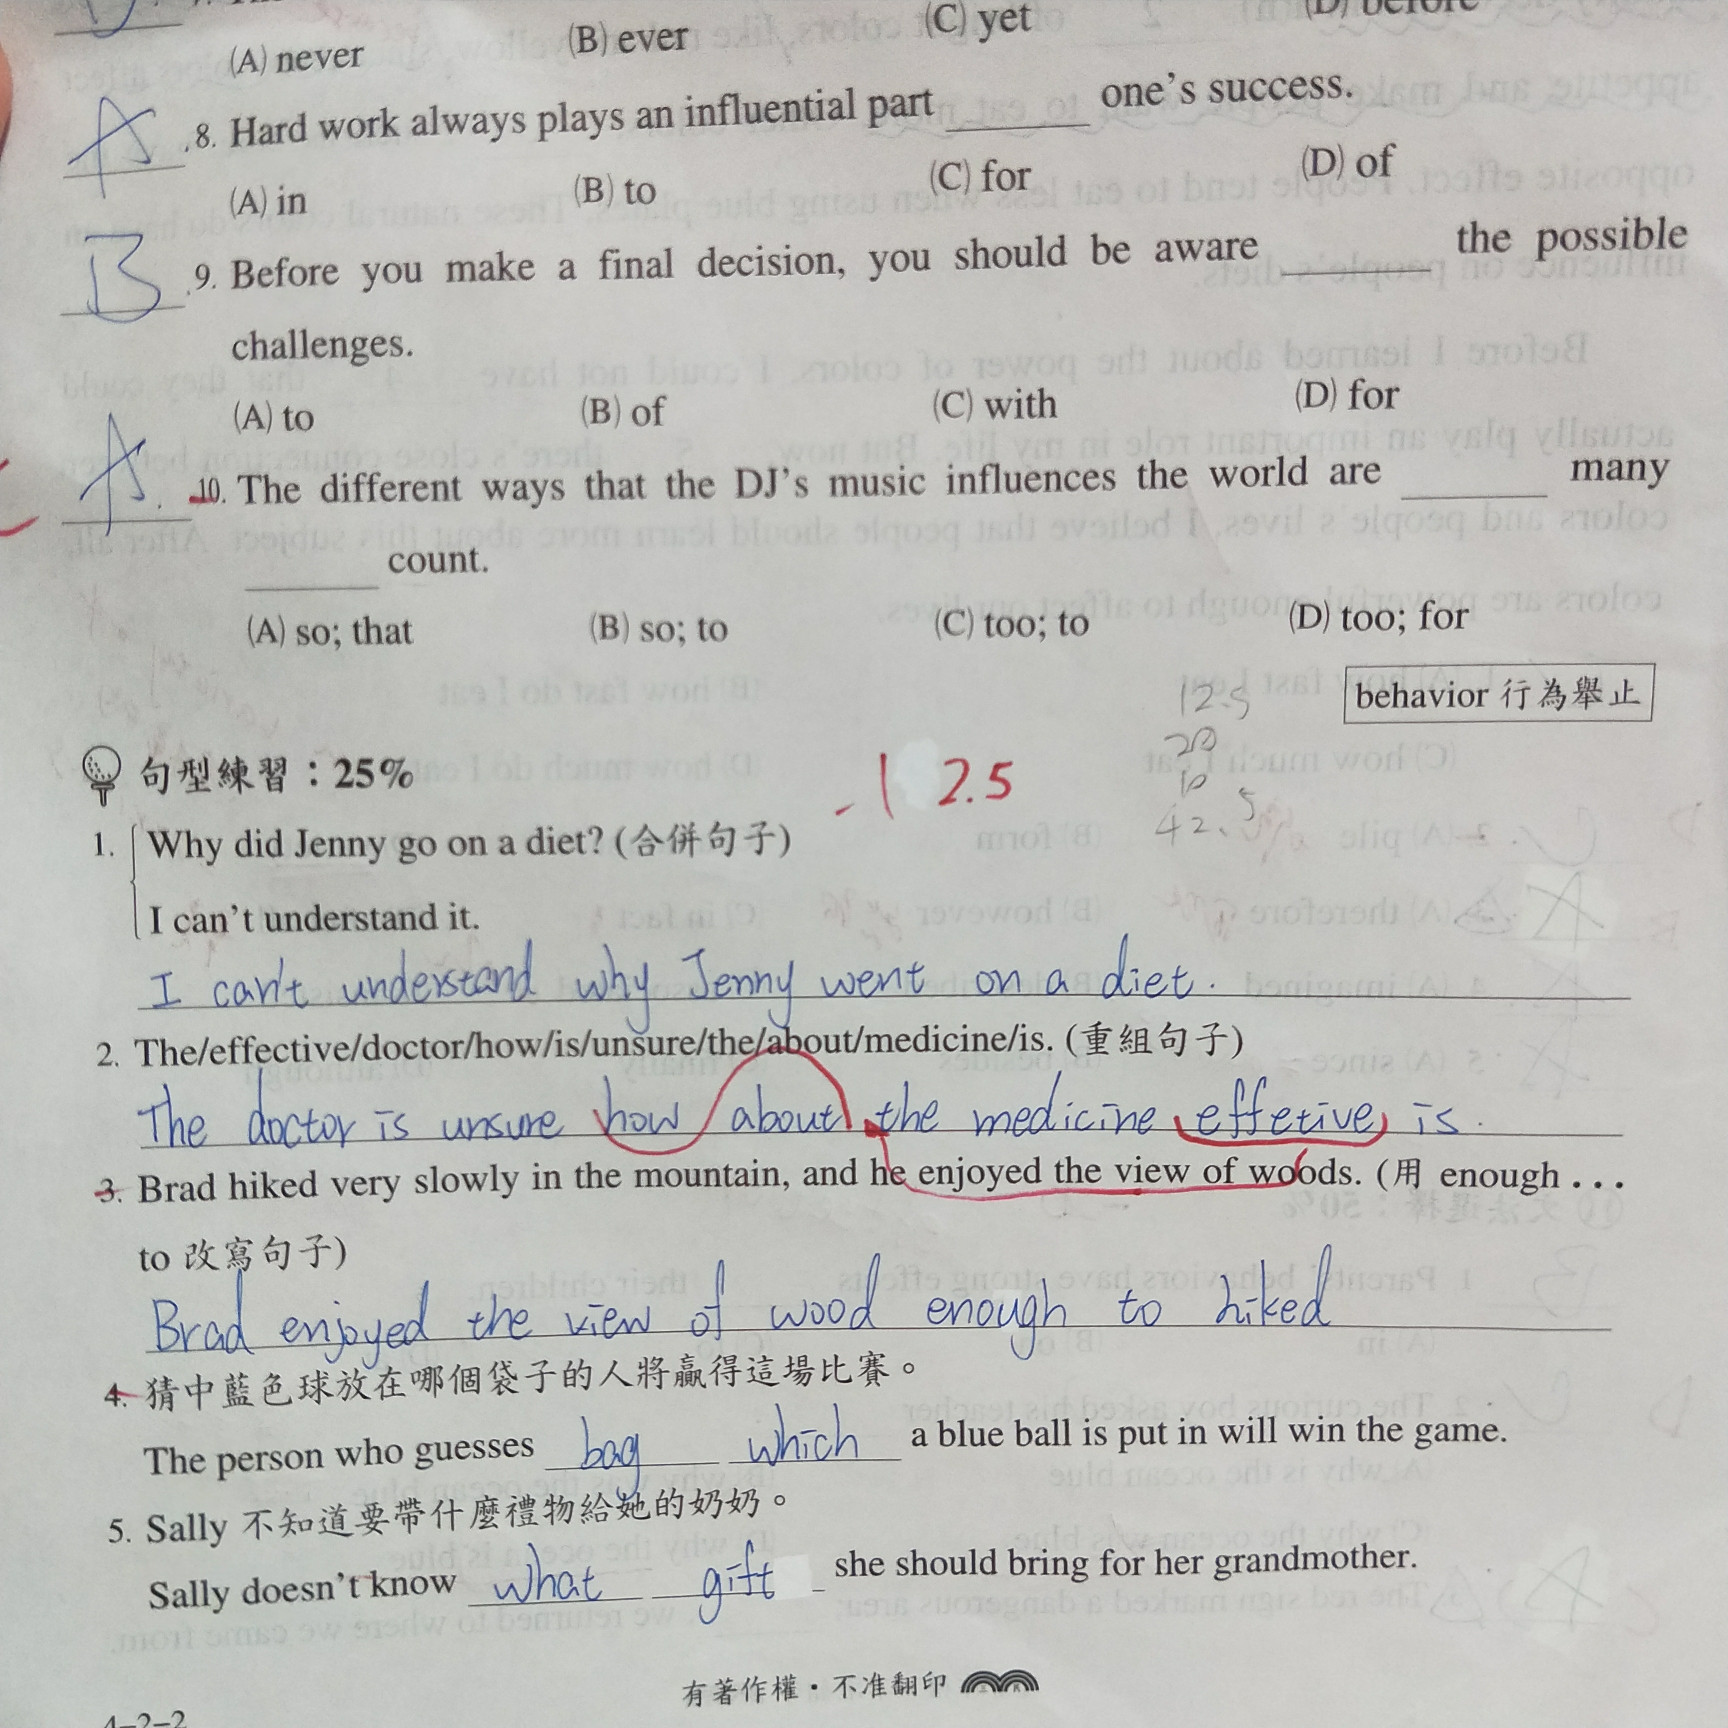 (A) never (B) ever (C) yet (D) before
A 8. Hard work always plays an influential part ______ one's success.
(A) in (B) to (C) for (D) of
B 9. Before you make a final decision, you should be aware ______ the possible
challenges.
(A) to (B) of (C) with (D) for
A 10. The different ways that the DJ's music influences the world are ______ many
______ count.
(A) so; that (B) so; to (C) too; to (D) too; for
12.5
behavior 行為舉止
20
句型練習：25% -12.5
10
42.5
1. Why did Jenny go on a diet? (合併句子)
I can't understand it.
I can't understand why Jenny went on a diet.
2. The/effective/doctor/how/is/unsure/the/about/medicine/is. (重組句子)
The doctor is unsure how about the medicine effetive is.
3. Brad hiked very slowly in the mountain, and he enjoyed the view of woods. (用 enough . . .
to 改寫句子)
Brad enjoyed the view of wood enough to hiked
4. 猜中藍色球放在哪個袋子的人將贏得這場比賽。
The person who guesses bag which a blue ball is put in will win the game.
5. Sally 不知道要帶什麼禮物給她的奶奶。
Sally doesn't know what gift she should bring for her grandmother.
有著作權・不准翻印
4-2-2